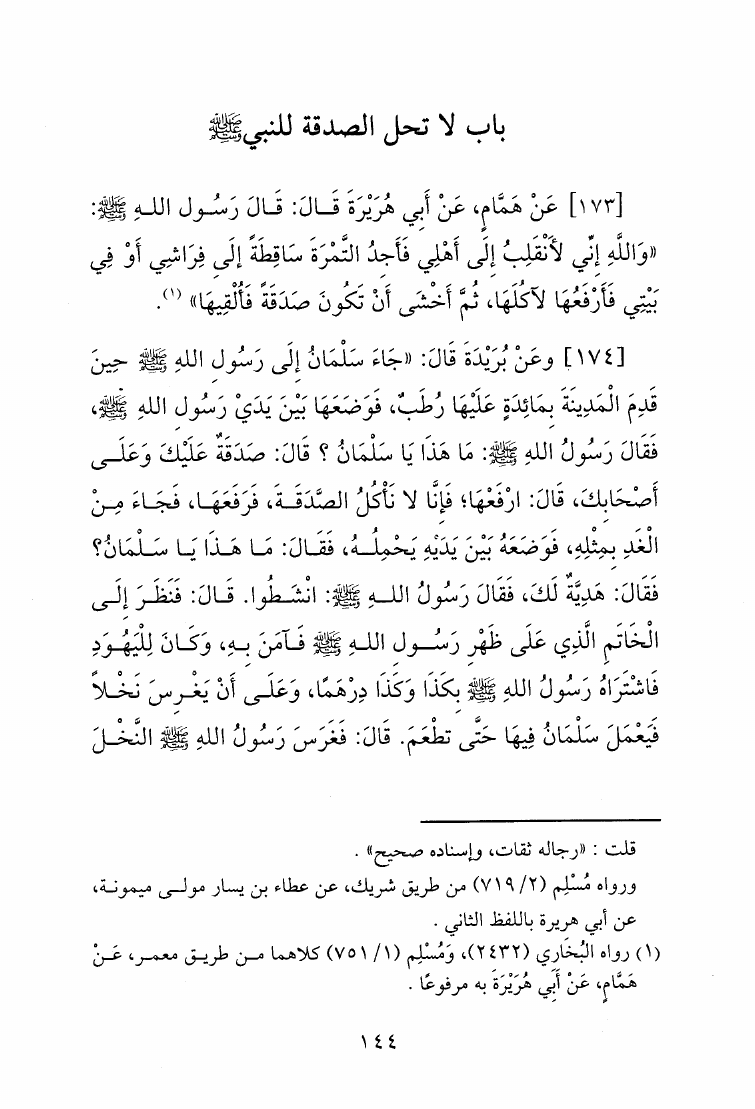 باب لا تحل الصدقة للنبي ﷺ
[١٧٣] عَنْ هَمَّامٍ، عَنْ أَبِي هُرَيْرَةَ قَـالَ: قَـالَ رَسُـول اللـهِ ﷺ:
«وَاللَّهِ إِنِّي لأَنْقَلِبُ إِلَى أَهْلِي فَأَجِدُ التَّمْرَةَ سَاقِطَةً إِلَى فِرَاشِي أَوْ فِي
بَيْتِي فَأَرْفَعُهَا لآكُلَهَا، ثُمَّ أَخْشَى أَنْ تَكُونَ صَدَقَةً فَأُلْقِيهَا» (١).
[١٧٤] وعَنْ بُرَيْدَةَ قَالَ: «جَاءَ سَلْمَانُ إِلَى رَسُولِ اللهِ ﷺ حِينَ
قَدِمَ الْمَدِينَةَ بِمَائِدَةٍ عَلَيْهَا رُطَبٌ، فَوَضَعَهَا بَيْنَ يَدَيْ رَسُولِ اللهِ ﷺ،
فَقَالَ رَسُولُ اللهِ ﷺ: مَا هَذَا يَا سَلْمَانُ ؟ قَالَ: صَدَقَةٌ عَلَيْكَ وَعَلَـى
أَصْحَابِكَ، قَالَ: ارْفَعْهَا؛ فَإِنَّا لا نَأْكُلُ الصَّدَقَـةَ، فَرَفَعَهَـا، فَجَـاءَ مِـنْ
الْغَدِ بِمِثْلِهِ، فَوَضَعَهُ بَيْنَ يَدَيْهِ يَحْمِلُـهُ، فَقَـالَ: مَـا هَـذَا يَـا سَـلْمَانُ؟
فَقَالَ: هَدِيَّةٌ لَكَ، فَقَالَ رَسُولُ اللـهِ ﷺ: انْشَـطُوا. قَـالَ: فَنَظَـرَ إِلَـى
الْخَاتَمِ الَّذِي عَلَى ظَهْرِ رَسُـولِ اللـهِ ﷺ فَـآمَنَ بِـهِ، وَكَـانَ لِلْيَهُـودِ
فَاشْتَرَاهُ رَسُولُ اللهِ ﷺ بِكَذَا وَكَذَا دِرْهَمًا، وَعَلَـى أَنْ يَغْـرِسَ نَخْـلاً
فَيَعْمَلَ سَلْمَانُ فِيهَا حَتَّى تطْعَمَ. قَالَ: فَغَرَسَ رَسُولُ اللهِ ﷺ النَّخْـلَ
قلت : «رجاله ثقات، وإسناده صحيح» .
ورواه مُسْلِم (٢/ ٧١٩) من طريق شريك، عن عطاء بن يسار مولـى ميمونـة،
عن أبي هريرة باللفظ الثاني .
(١) رواه البُخَاري (٢٤٣٢)، وَمُسْلِم (١/ ٧٥١) كلاهما مـن طريـق معمـر، عَـنْ
هَمَّامٍ، عَنْ أَبِي هُرَيْرَةَ به مرفوعًا .
١٤٤